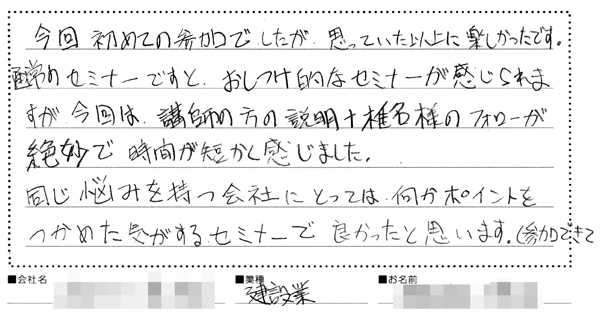 今回 初めての参加でしたが、思っていた以上に楽しかったです。
通常のセミナーですと、おしつけ的なセミナーが感じられま
すが 今回は、講師の方の説明+椎名様のフォローが
絶妙で 時間が短かく感じました。
同じ悩みを持つ会社にとっては、何かポイントを
つかめた気がするセミナーで 良かったと思います。(参加できて
■会社名 ■業種 建設業 ■お名前